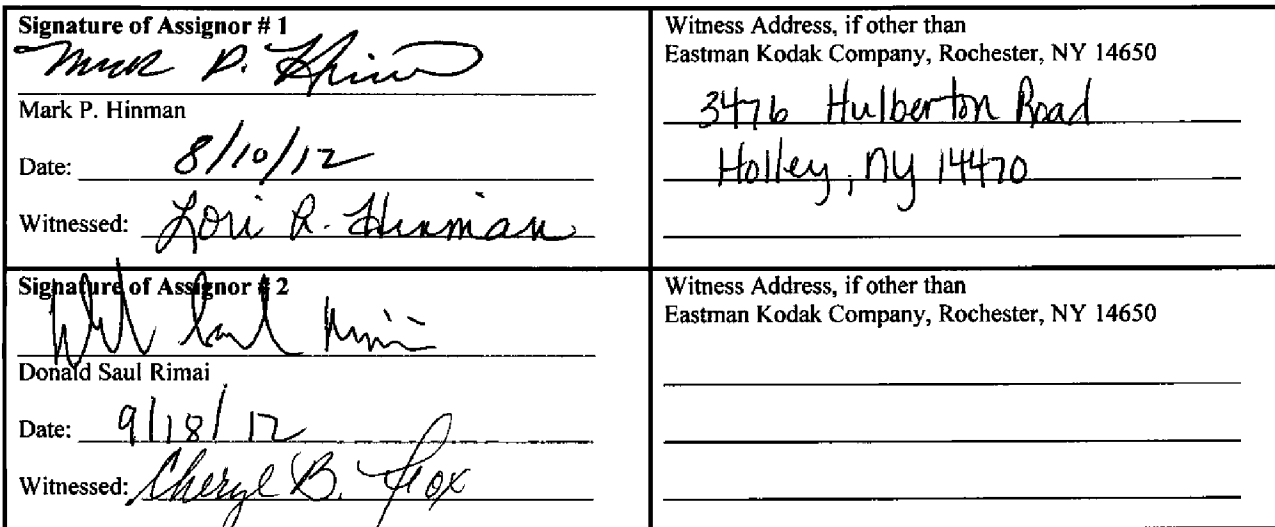 Signature of Assignor # 1
Mark P. Hinman
Mark P. Hinman
Date: 8/10/12
Witnessed: Lori R. Hinman
Witness Address, if other than
Eastman Kodak Company, Rochester, NY 14650
3476 Hulberton Road
Holley, NY 14470
Signature of Assignor # 2
Donald Saul Rimai
Date: 9/18/12
Witnessed: Cheryl B. Fox
Witness Address, if other than
Eastman Kodak Company, Rochester, NY 14650